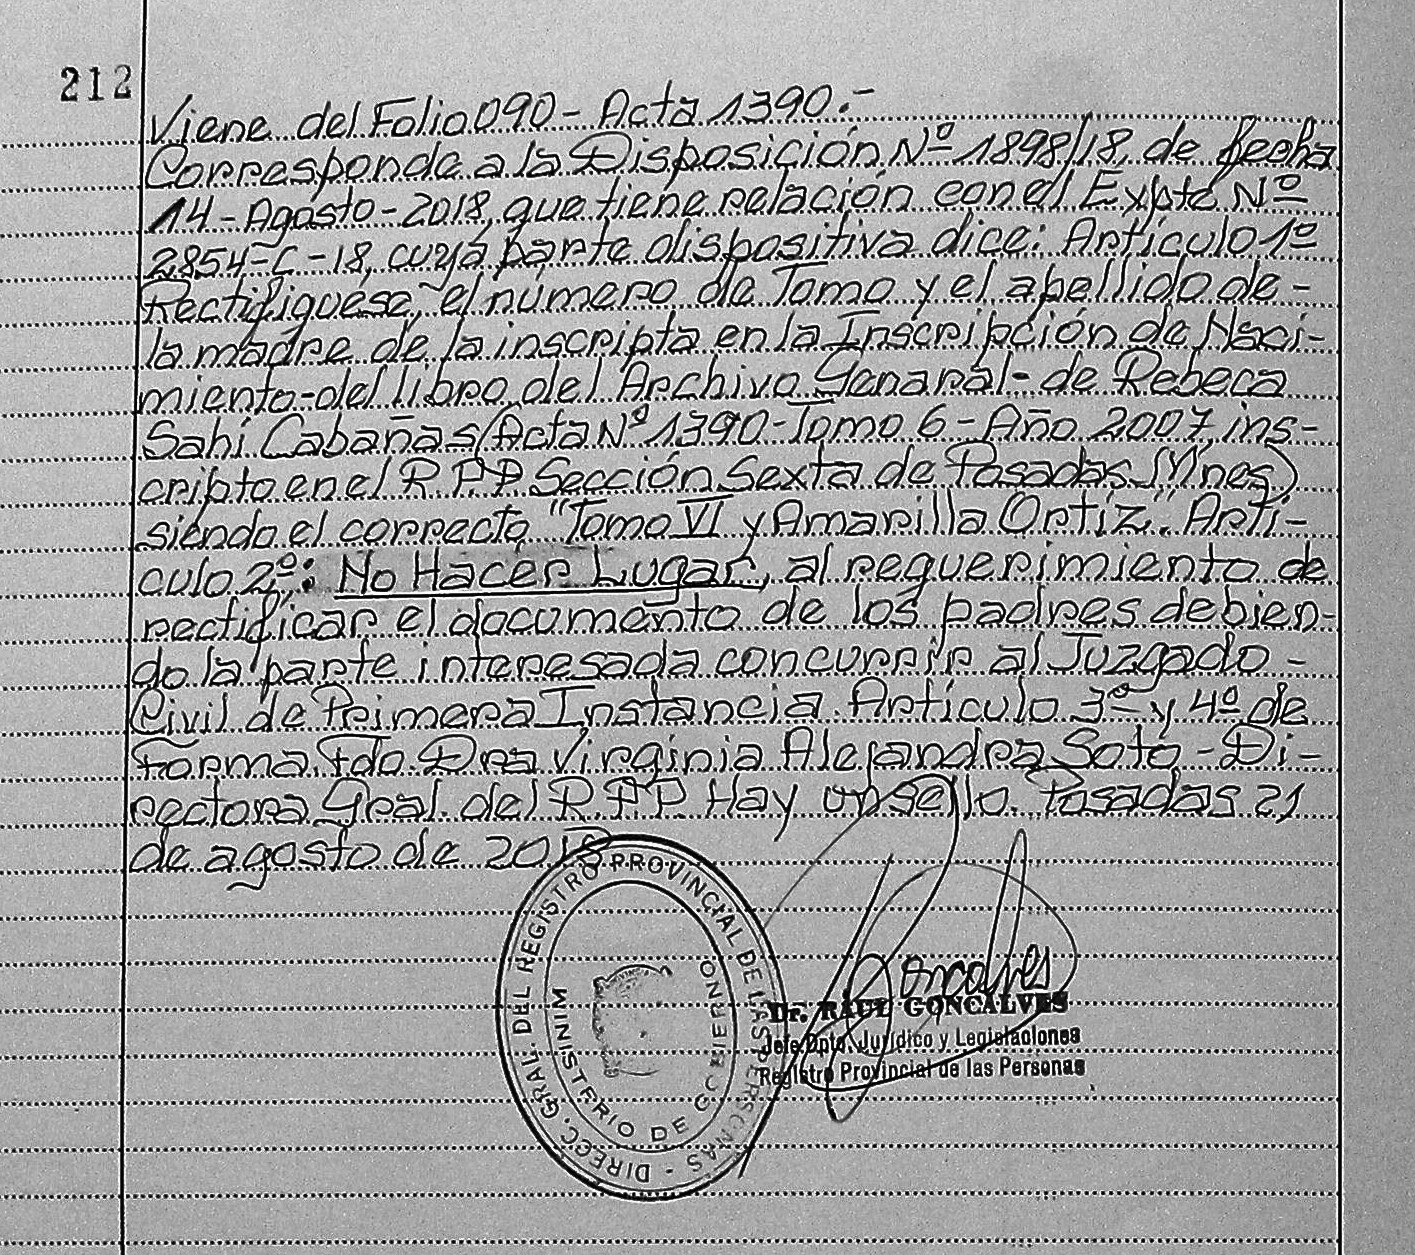 212
Viene del Folio 090 - Acta 1390.-
Corresponde a la Disposición Nº 1898/18, de fecha
14-Agosto-2018, que tiene relación con el Expte Nº
2854-C-18, cuya parte dispositiva dice: Artículo 1º
Rectifíquese, el número de Tomo y el apellido de -
la madre de la inscripta en la Inscripción de Naci-
miento-del libro del Archivo General- de Rebeca
Sahí Cabañas, Acta Nº 1390-Tomo 6-Año 2007, ins-
cripto en el R.P.P Sección Sexta de Posadas (Mnes)
siendo el correcto "Tomo VI y Amarilla Ortíz". Artí-
culo 2º: No Hacer Lugar, al requerimiento de
rectificar el documento de los padres debien-
do la parte interesada concurrir al Juzgado -
Civil de Primera Instancia. Artículo 3º y 4º de
Forma. Fdo. Dra Virginia Alejandra Soto - Di-
rectora Gral. del R.P.P. Hay un sello. Posadas 21
de agosto de 2018
DIRECC. GRAL. DEL REGISTRO PROVINCIAL DE LAS PERSONAS -
MINISTERIO DE GOBIERNO
Goncalves
Dr. RAUL GONCALVES
Jefe Dpto. Jurídico y Legislaciones
Registro Provincial de las Personas